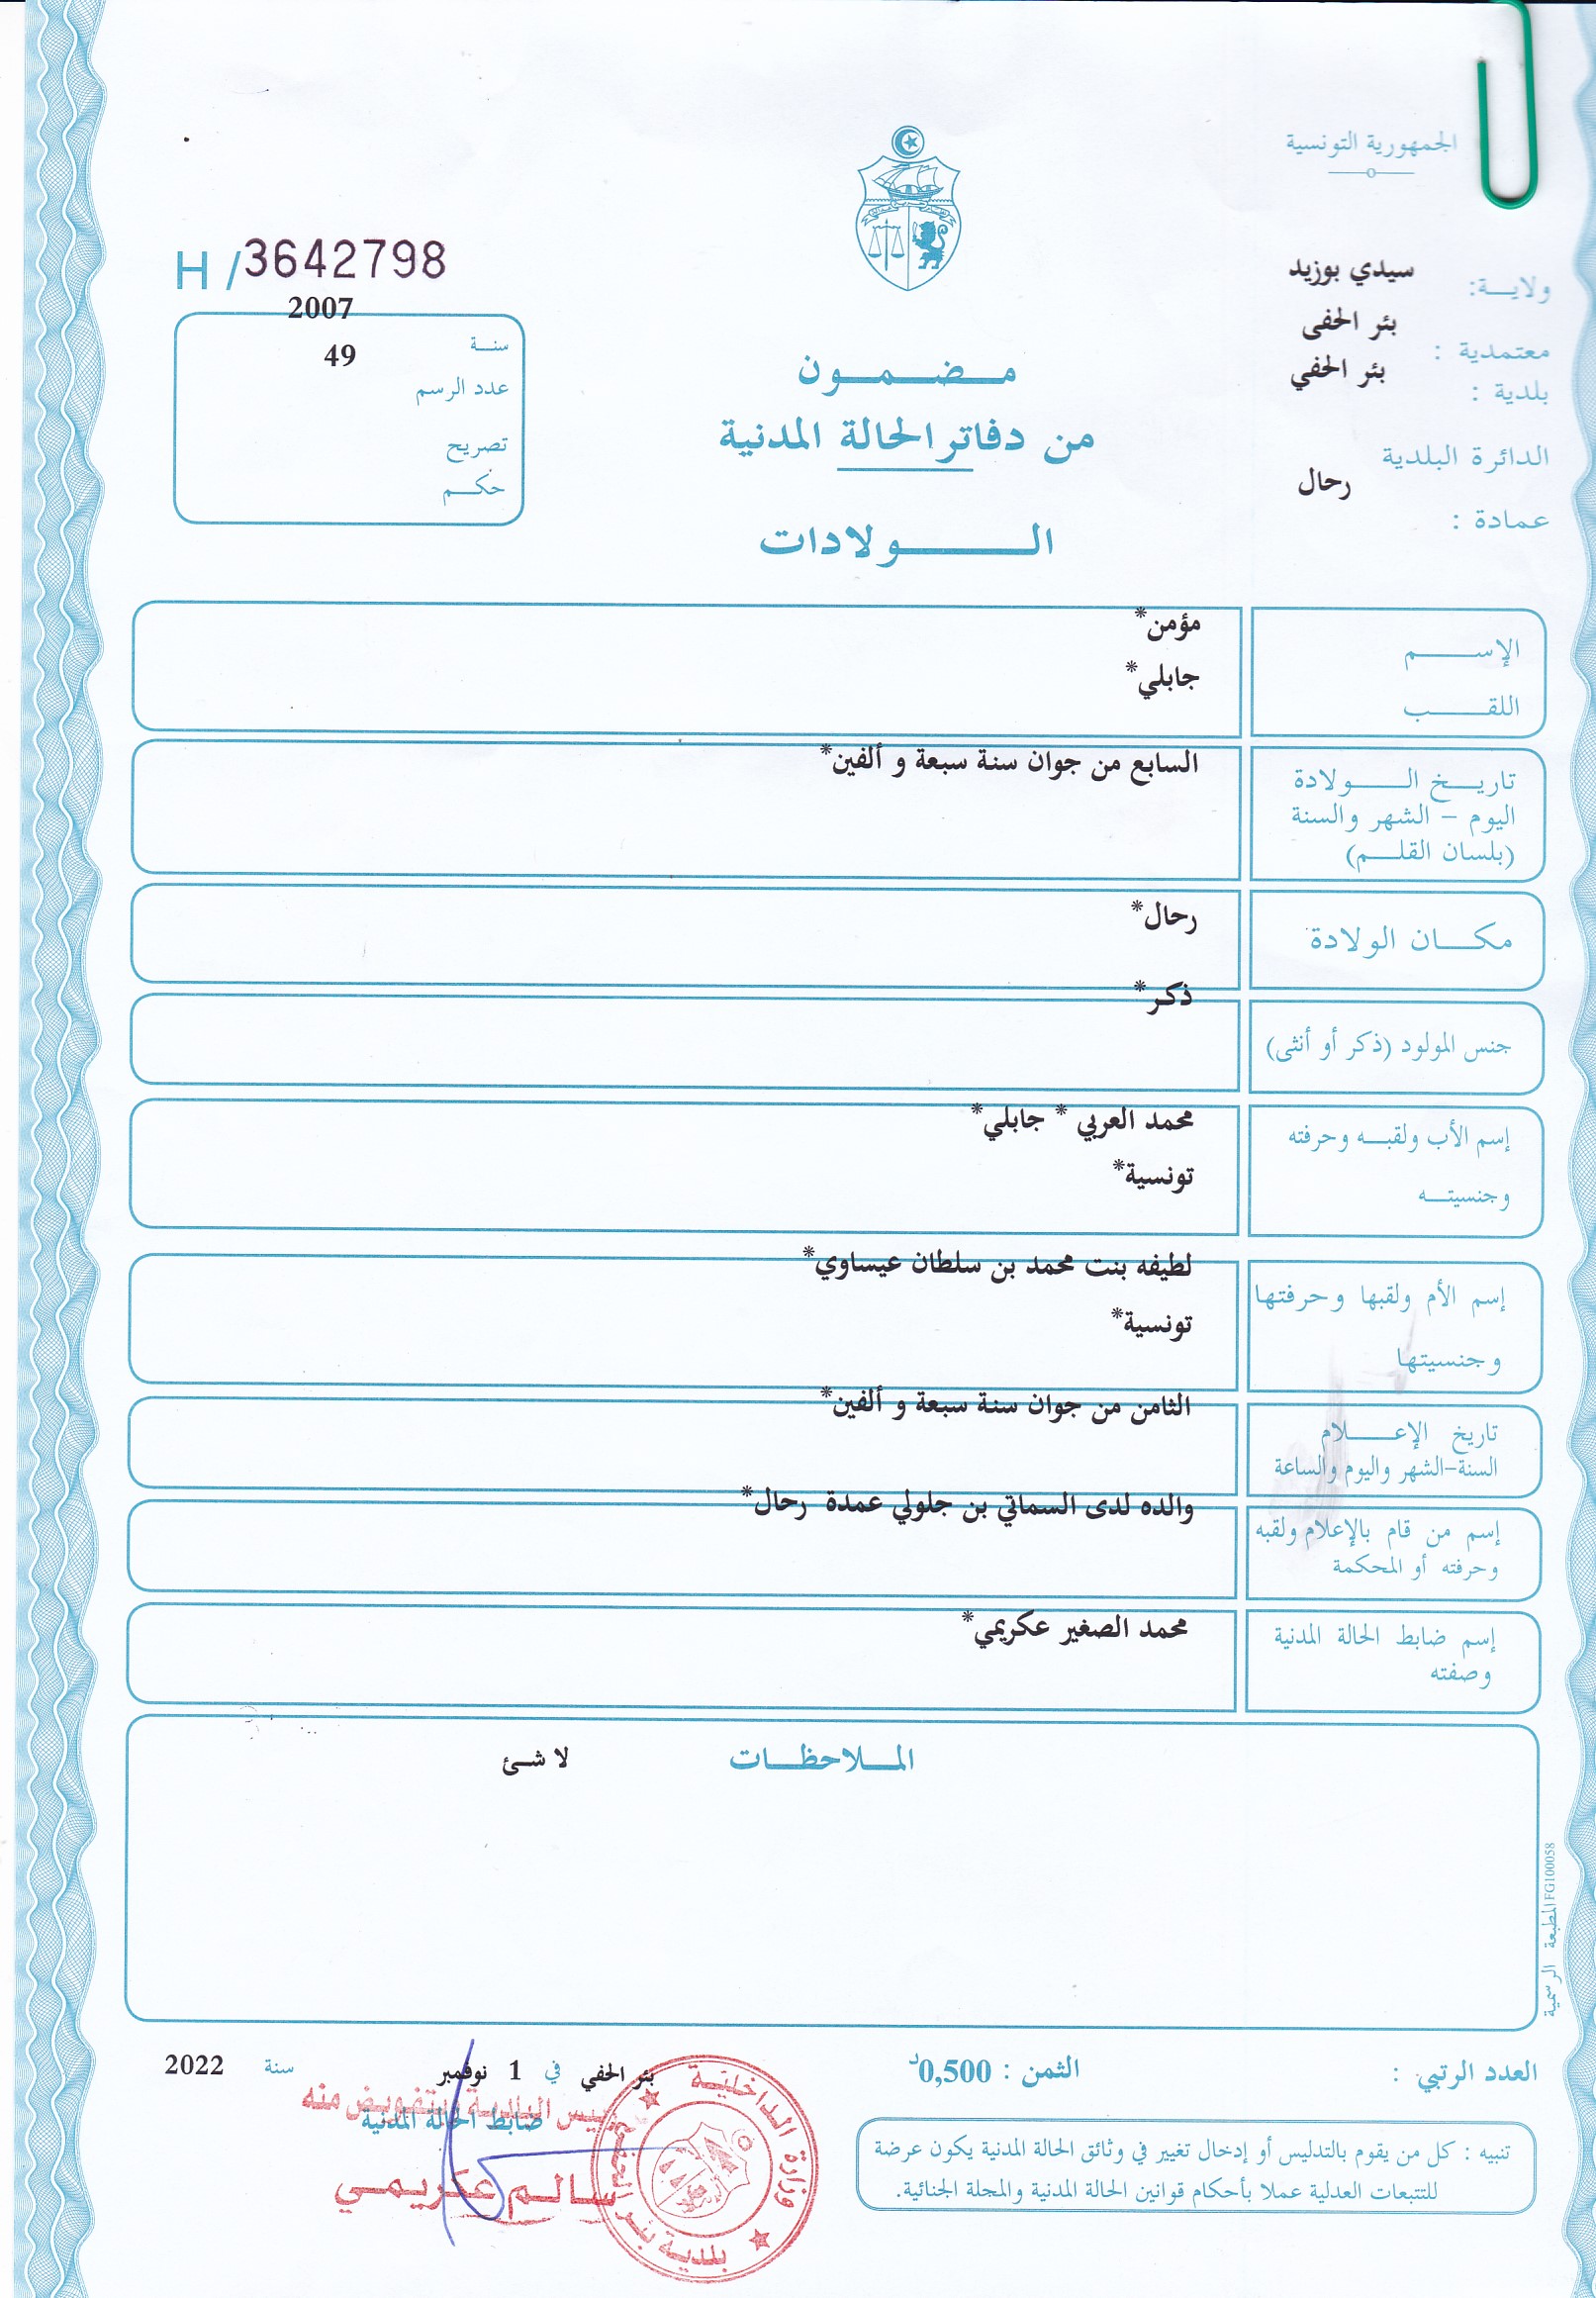 الجمهورية التونسية
ولايـــة: سيدي بوزيد
معتمدية : بئر الحفى
بلدية : بئر الحفي
الدائرة البلدية
عمادة : رحال
H /3642798
سنــة 2007
عدد الرسم 49
تصريح
حكــم
مـضـمـون
من دفاتر الحالة المدنية
الـولادات
الإســـم مؤمن*
اللقـــب جابلي*
تاريــخ الــولادة السابع من جوان سنة سبعة و ألفين*
اليوم – الشهر والسنة
(بلسان القلــم)
مكــان الولادة رحال*
جنس المولود (ذكر أو أنثى) ذكر*
إسم الأب ولقبــه وحرفته محمد العربي * جابلي*
وجنسيتــه تونسية*
إسم الأم ولقبها وحرفتها لطيفه بنت محمد بن سلطان عيساوي*
وجنسيتها تونسية*
تاريخ الإعــلام الثامن من جوان سنة سبعة و ألفين*
السنة-الشهر واليوم والساعة
إسم من قام بالإعلام ولقبه والده لدى السماتي بن جلولي عمدة رحال*
وحرفته أو المحكمة
إسم ضابط الحالة المدنية محمد الصغير عكريمي*
وصفته
المــلاحظــات لا شئ
المطبعة الرسمية FG100058
العدد الرتبي :
الثمن : 0,500د
بئر الحفي في 1 نوفمبر سنة 2022
ضابط الحالة المدنية
رئيس البلدية وبتفويض منه
سالـم عكريمـي
وزارة الداخلية
بلدية بئر الحفي
تنبيه : كل من يقوم بالتدليس أو إدخال تغيير في وثائق الحالة المدنية يكون عرضة
للتتبعات العدلية عملا بأحكام قوانين الحالة المدنية والمجلة الجنائية.